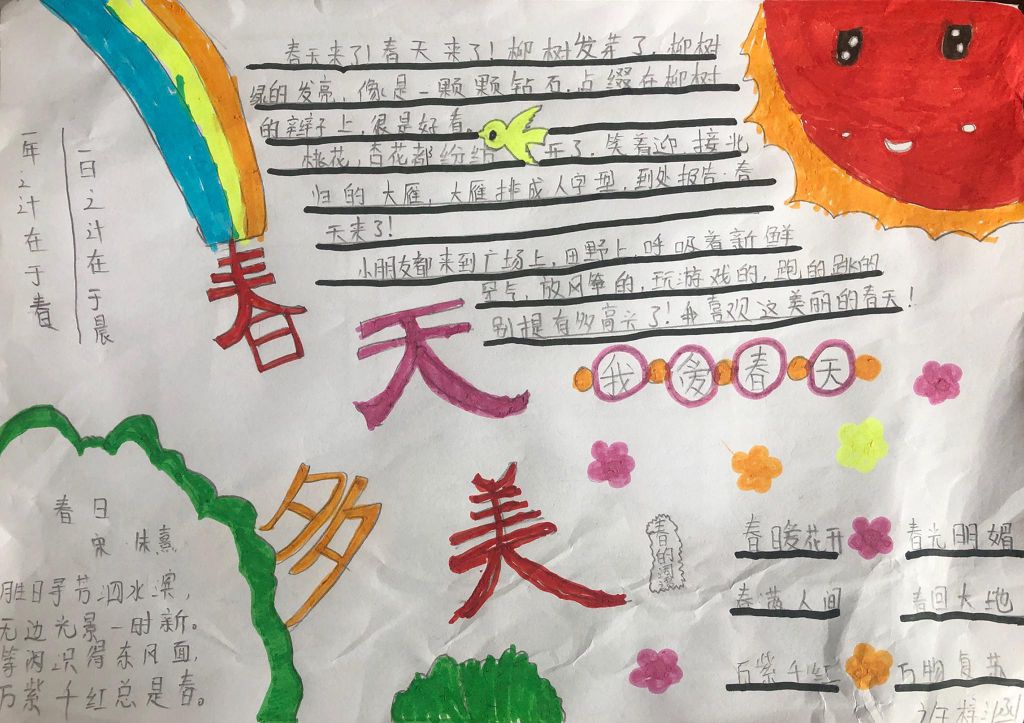 春天来了！春天来了！柳树发芽了，柳树
绿的发亮，像是一颗颗钻石，点缀在柳树
的辫子上，很是好看。
桃花，杏花都纷纷开了，笑着迎接北
归的大雁，大雁排成人字型，到处报告：春
天来了！
小朋友都来到广场上，田野上，呼吸着新鲜
空气，放风筝的，玩游戏的，跑的跳的
别提有多高兴了！我喜欢这美丽的春天！
一日之计在于晨
一年之计在于春
春天
多美
我爱春天
春日
宋·朱熹
胜日寻芳泗水滨，
无边光景一时新。
等闲识得东风面，
万紫千红总是春。
春的
春暖花开
春光明媚
春满人间
春回大地
万紫千红
万物复苏